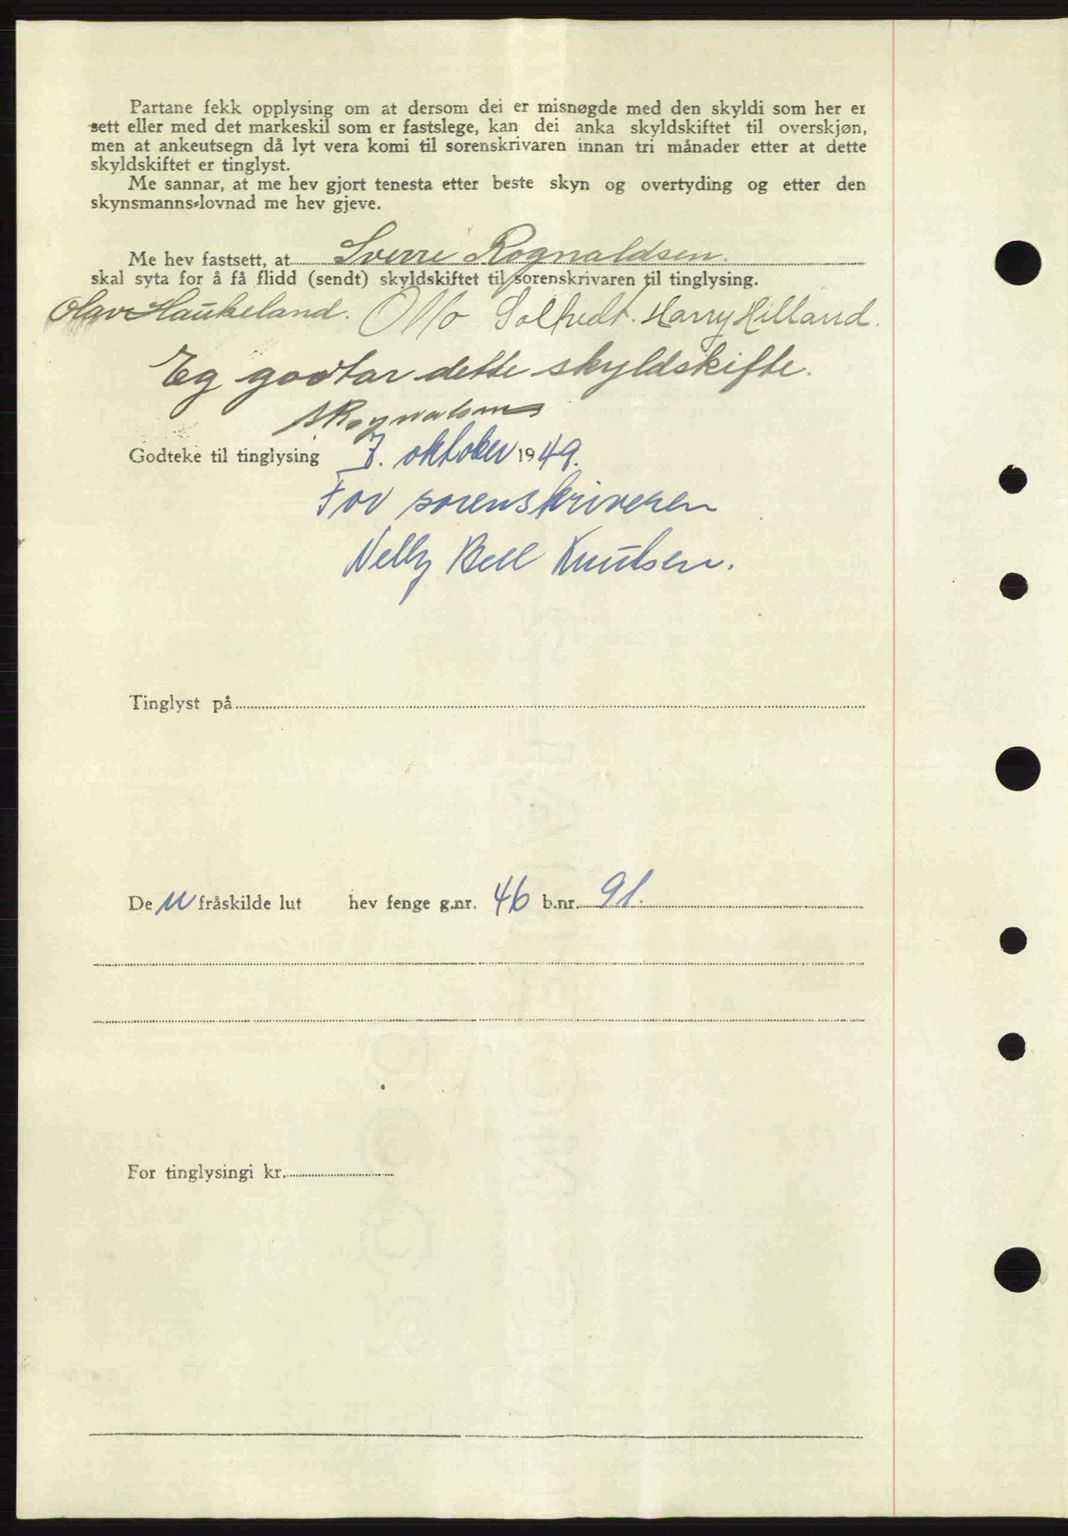 Partane fekk opplysing om at dersom dei er misnøgde med den skyldi som her er
sett eller med det markeskil som er fastslege, kan dei anka skyldskiftet til overskjøn,
men at ankeutsegn då lyt vera komi til sorenskrivaren innan tri månader etter at dette
skyldskiftet er tinglyst.
Me sannar, at me hev gjort tenesta etter beste skyn og overtyding og etter den
skynsmanns-lovnad me hev gjeve.
Me hev fastsett, at Sverre Rognaldsen.
skal syta for å få flidd (sendt) skyldskiftet til sorenskrivaren til tinglysing.
Olav Haukeland. Otto Soltvedt. Harry Hilland.
Eg godtar dette skyldskifte.
S Rognaldsen
Godteke til tinglysing 7. oktober 1949.
For sorenskriveren
Nelly Bell Knutsen.
Tinglyst på
De n fråskilde lut hev fenge g.nr. 46 b.nr. 91.
For tinglysingi kr.